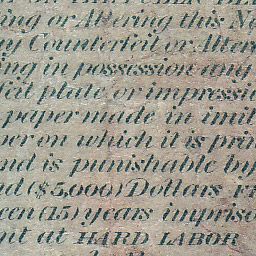 ing or Altering this N
ny Counterfeit or Alter
ing in possession any
feit plate or impressi
paper made in imit
per on which it is prin
nd is punishable by
nd ($5,000) Dollars
en (15) years impriso
nt at HARD LABOR